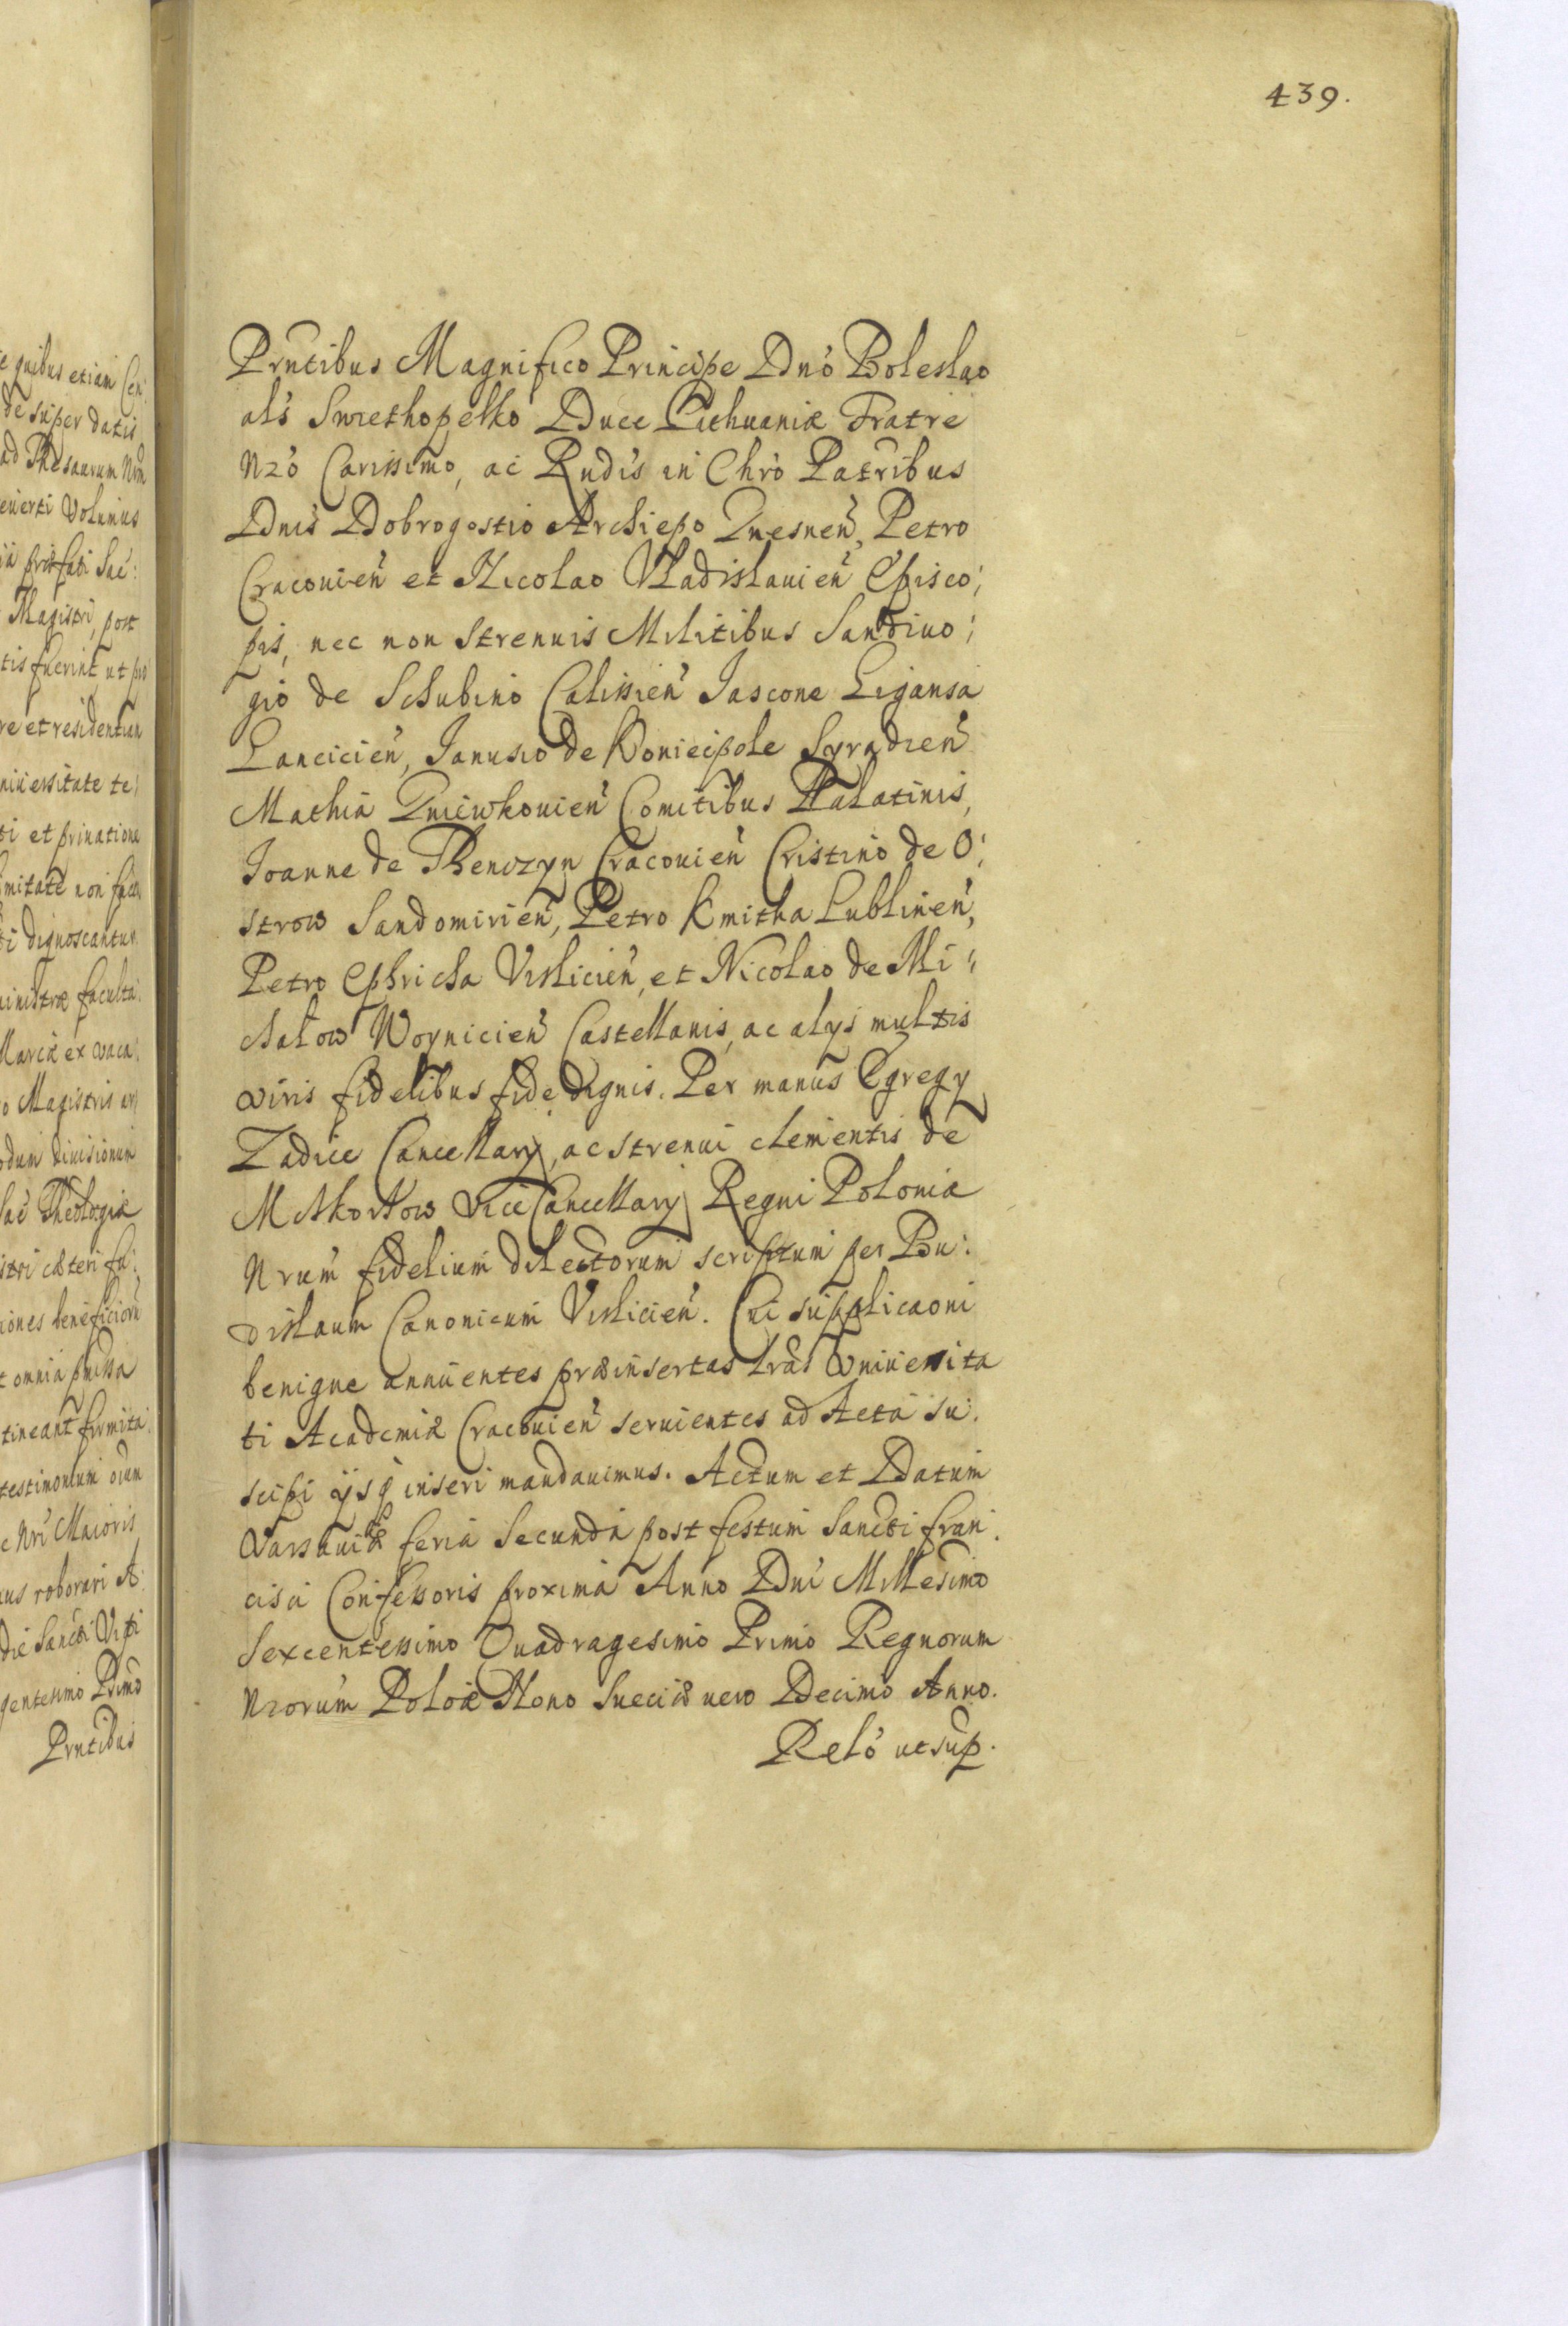 439.
Prntibus Magnifico Principe Dno Boleslao
als Swiethopelko Duce Lithuaniæ Fratre
Nro Carissimo, ac Rndis in Chro Patribus
Dnis Dobrogostio Archiepo Gnesnen, Petro
Cracouien et Nicolao Vladislauien Episco:
pis, nec non strenuis Militibus Sandiuo:
gio de Schubino Calissien Jascone Ligansa
Lancicien, Janusio de Koniecpole Syradien
Mathia Gniewkouien Comitibus Palatinis,
Joanne de Thenczyn Cracouien Cristino de O:
strow Sandomirien, Petro Kmitha Lublinen,
Petro Ephricha Vislicien, et Nicolao de Mi:
chalow Woynicien Castellanis, ac alys multis
viris fidelibus fide dignis. Per manus Egregy
Zadice Cancellary, ac strenui clementis de
Mskorkow vice Cancellary Regni Poloniæ
Nrum fidelium dilectorum scriptum per Bu:
dislaum Canonicum Vislicien. Cui supplicaoni
benigne annuentes præinsertas lras Vniuersita
ti Academiæ Cracouien seruientes ad Acta su:
scipi ijsq inseri mandauimus. Actum et Datum
Varsauiæ feria Secunda post festum Sancti fran:
cisci Confessoris proxima Anno Dni Millesimo
Sexcentessimo Quadragesimo Primo Regnorum
Nrorum Poloæ Nono Sueciæ vero Decimo Anno.
Relo ut sup.
e quibus etiam Cen:
de super datis
ad Thesaurum Nrm
euerti Volumus
Magistri, post
tis fuerint, ut pro
re et residentiam
niuersitate te
ti et priuatione
ti dignoscantur
inistræ faculta:
Marciæ ex vaca:
o Magistris ar
odum diuisionum
Sac Theologiæ
istri cæteri fa:
iones beneficiorum
t omnia pmissa
tineant firmita:
testimonium oium
c Nri Maioris
us roborari A:
die Sancti Viti
gentesimo Primo
Prntibus